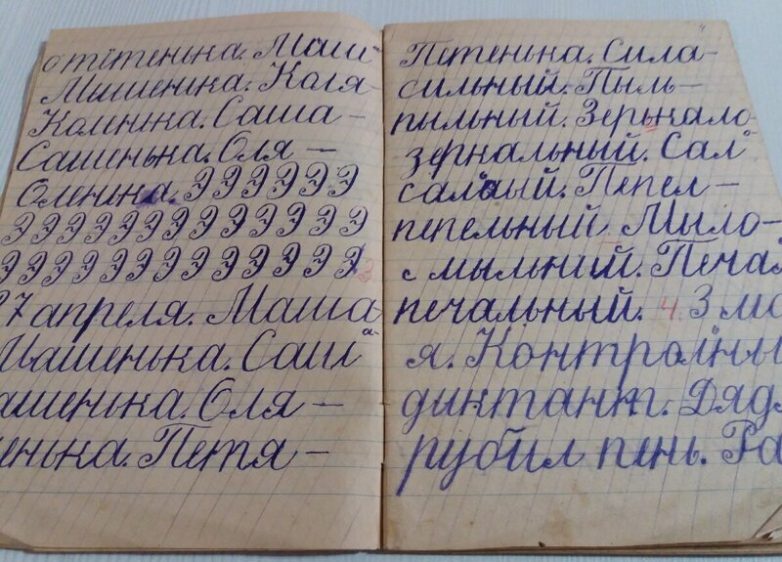 отётенька. Маш
Мишенька. Коля
Коленька. Саша —
Сашенька. Оля —
Оленька. Э Э Э Э Э Э
Э Э Э Э Э Э Э Э Э Э Э Э Э
Э Э Э Э Э Э Э Э Э Э Э Э Э 3
27 апреля. Маша
Машенька. Саша
ашенька. Оля —
енька. Петя —
Петенька. Сила-
сильный. Пыль —
пыльный. Зерькало-
зеркальный. Сал
сальный. Пепел —
пепельный. Мыло-
с мыльний. Печал
печальный. 4. 3 ма
я. Контрольны
диктант. Дяд
рубил пень. Ра